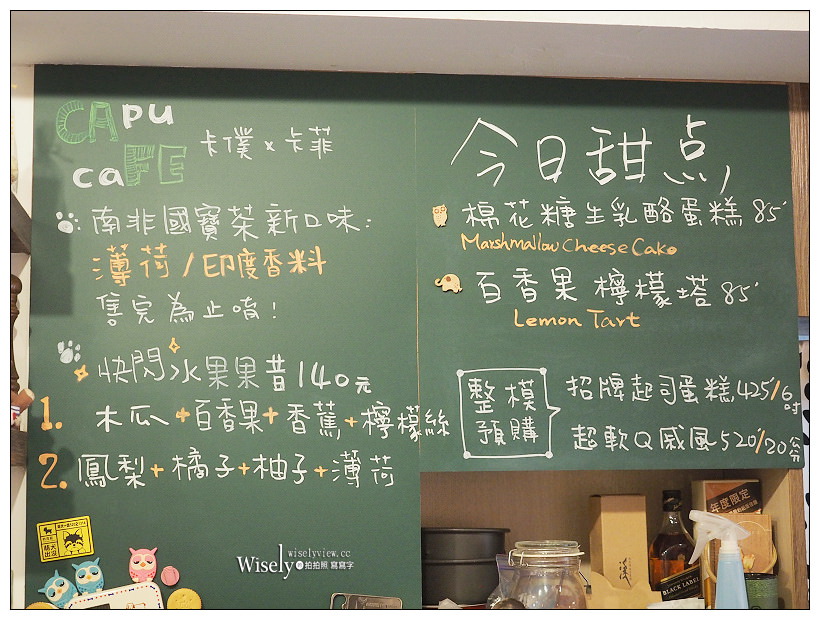 CAPU
caFE
卡僕 x 卡菲
南非國寶茶新口味:
薄荷/印度香料
售完為止唷!
快閃冰果果昔140元
1. 木瓜+百香果+香蕉+檸檬絲
2. 鳳梨+橘子+柚子+薄荷
今日甜点
棉花糖生乳酪蛋糕 85
Marshmallow Cheese Cake
百香果檸檬塔 85
Lemon Tart
整模
預購
招牌起司蛋糕 425/6吋
超軟Q戚風 520/20公分
年度限定
BLACK LABEL
wiselyview.cc
Wisely 拍拍照 寫寫字